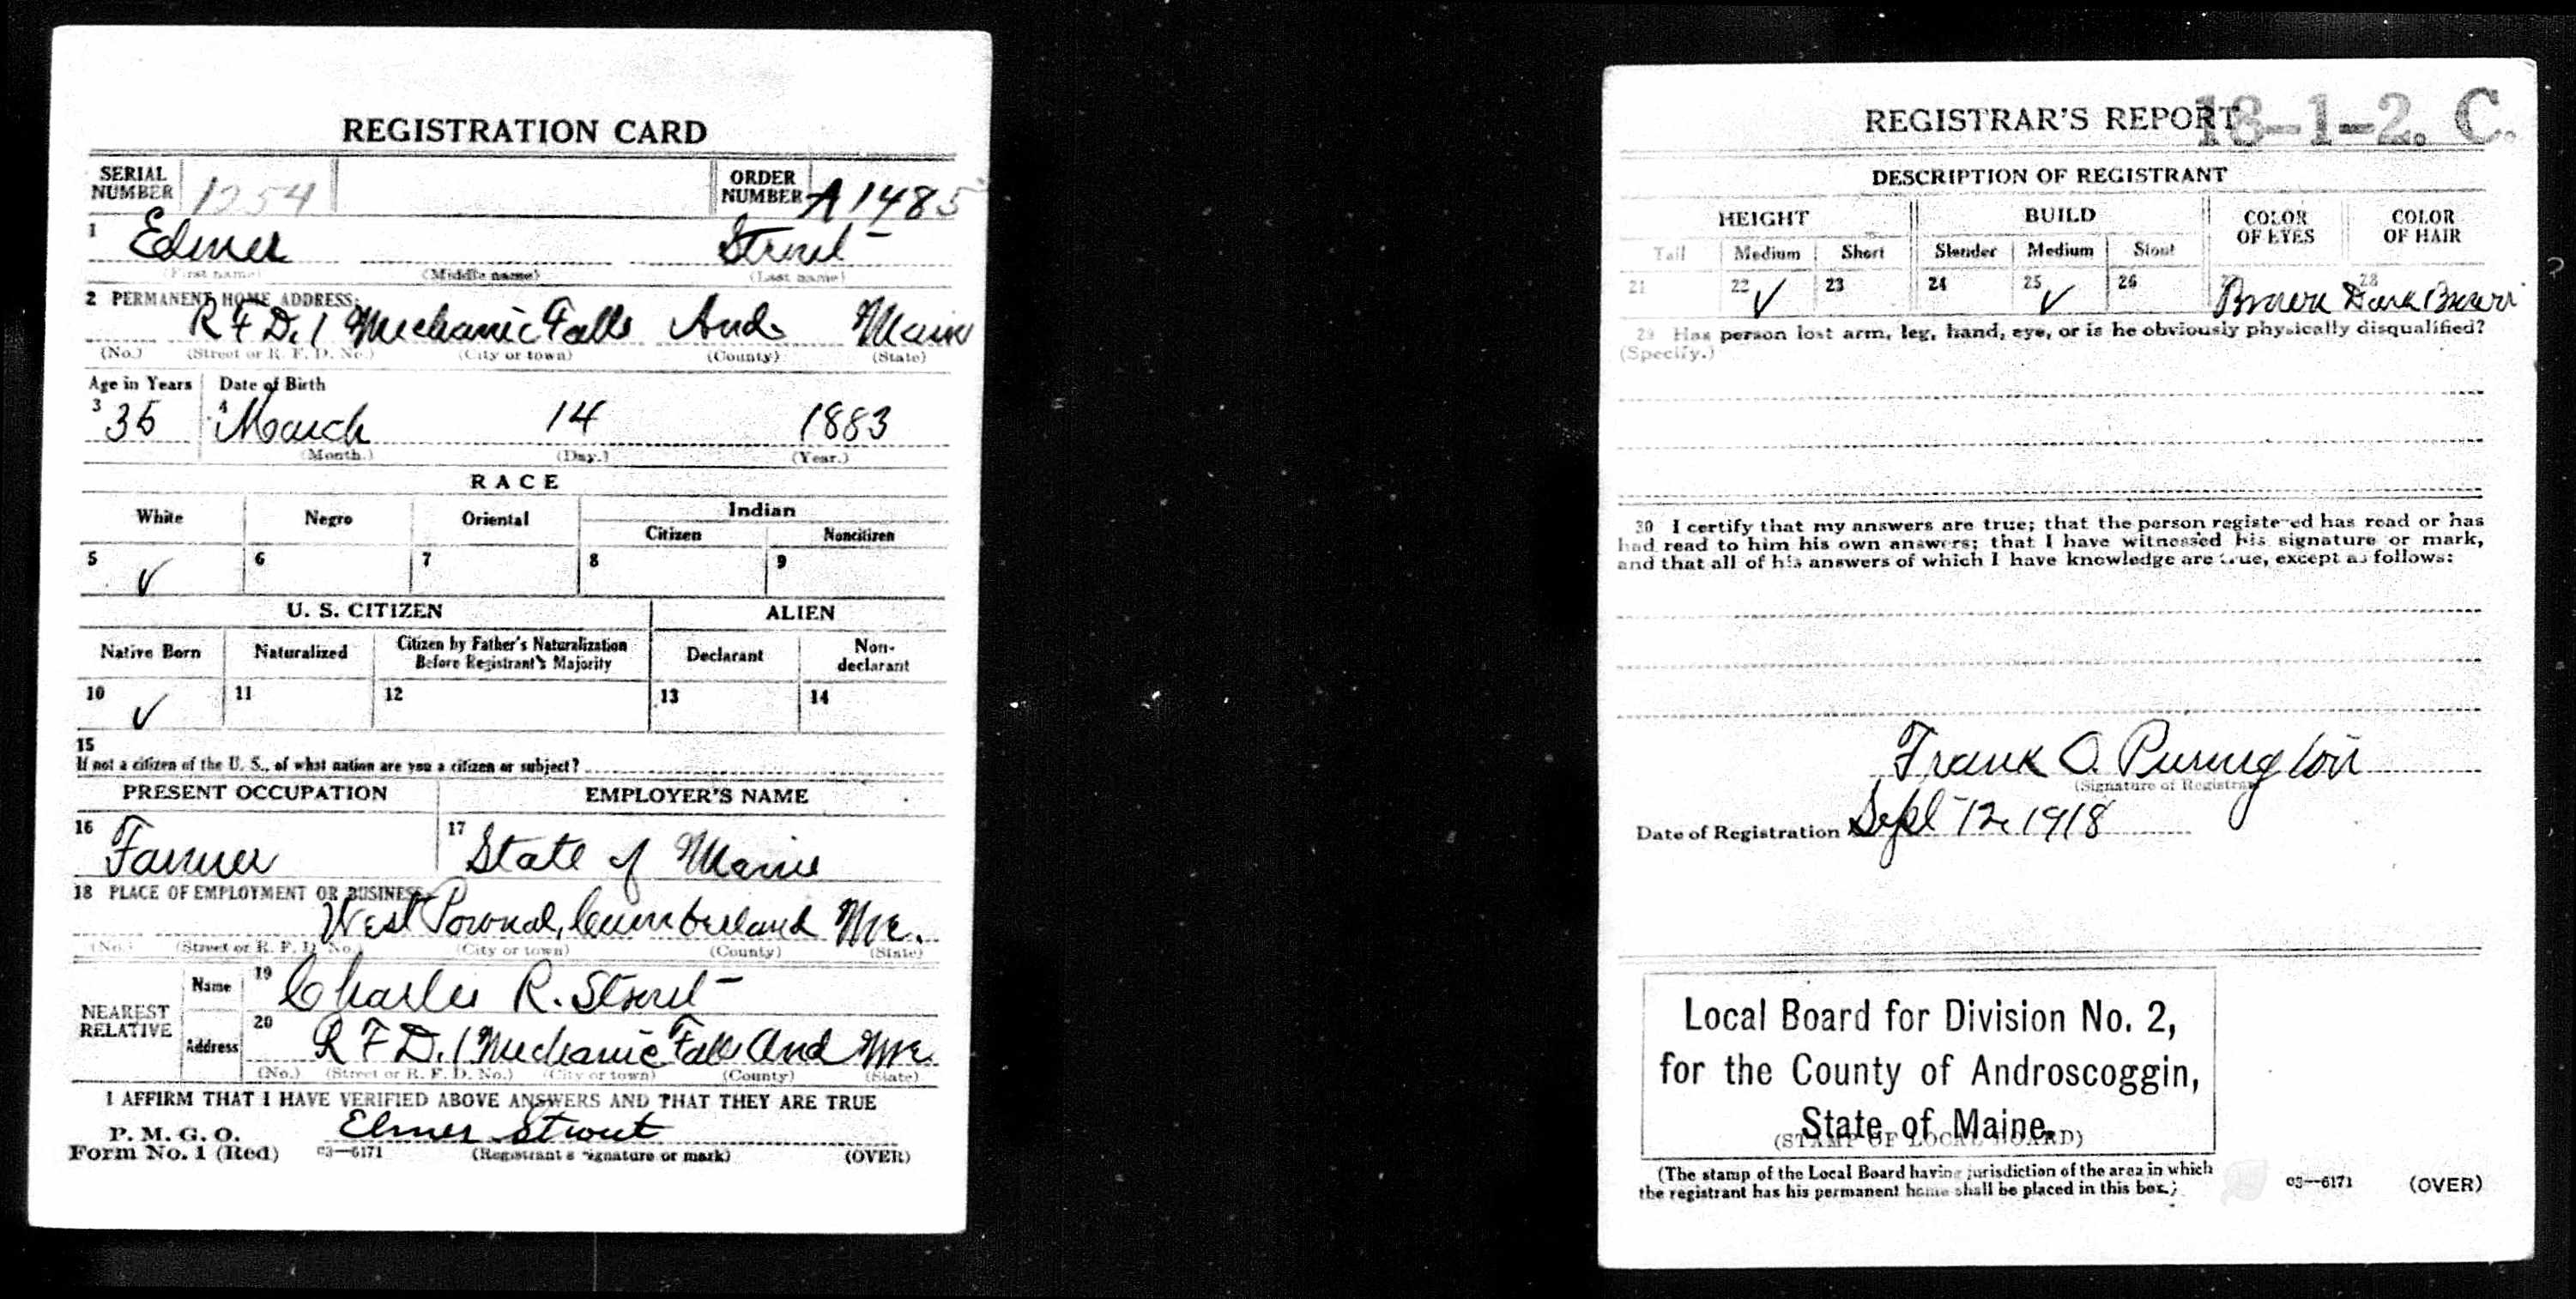 REGISTRATION CARD
SERIAL NUMBER 1254 ORDER NUMBER A1485
1 Elmer Strout
(First name) (Middle name) (Last name)
2 PERMANENT HOME ADDRESS:
R F D. 1 Mechanic Falls And. Maine
(No.) (Street or R. F. D. No.) (City or town) (County) (State)
Age in Years Date of Birth
3 35 4 March 14 1883
(Month.) (Day.) (Year.)
RACE
White Negro Oriental Indian
Citizen Noncitizen
5 ✓ 6 7 8 9
U. S. CITIZEN ALIEN
Native Born Naturalized Citizen by Father's Naturalization Before Registrant's Majority Declarant Non-declarant
10 ✓ 11 12 13 14
15
If not a citizen of the U. S., of what nation are you a citizen or subject?
PRESENT OCCUPATION EMPLOYER'S NAME
16 Farmer 17 State of Maine
18 PLACE OF EMPLOYMENT OR BUSINESS:
West Pownal, Cumberland Me.
(No.) (Street or R. F. D. No.) (City or town) (County) (State)
NEAREST RELATIVE Name 19 Charles R. Strout
Address 20 R F D. 1 Mechanic Falls And Me.
(No.) (Street or R. F. D. No.) (City or town) (County) (State)
I AFFIRM THAT I HAVE VERIFIED ABOVE ANSWERS AND THAT THEY ARE TRUE
P. M. G. O.
Form No. 1 (Red) 03—6171 Elmer Strout
(Registrant's signature or mark) (OVER)
REGISTRAR'S REPORT 18-1-2. C.
DESCRIPTION OF REGISTRANT
HEIGHT BUILD COLOR OF EYES COLOR OF HAIR
Tall Medium Short Slender Medium Stout
21 22 ✓ 23 24 25 ✓ 26 27 Brown 28 Dark Brown
29 Has person lost arm, leg, hand, eye, or is he obviously physically disqualified?
(Specify.)
30 I certify that my answers are true; that the person registered has read or has
had read to him his own answers; that I have witnessed his signature or mark,
and that all of his answers of which I have knowledge are true, except as follows:
Frank O. Purington
(Signature of Registrar)
Date of Registration Sept 12, 1918
Local Board for Division No. 2,
for the County of Androscoggin,
State of Maine.
(STAMP OF LOCAL BOARD)
(The stamp of the Local Board having jurisdiction of the area in which
the registrant has his permanent home shall be placed in this box.)
03—6171 (OVER)